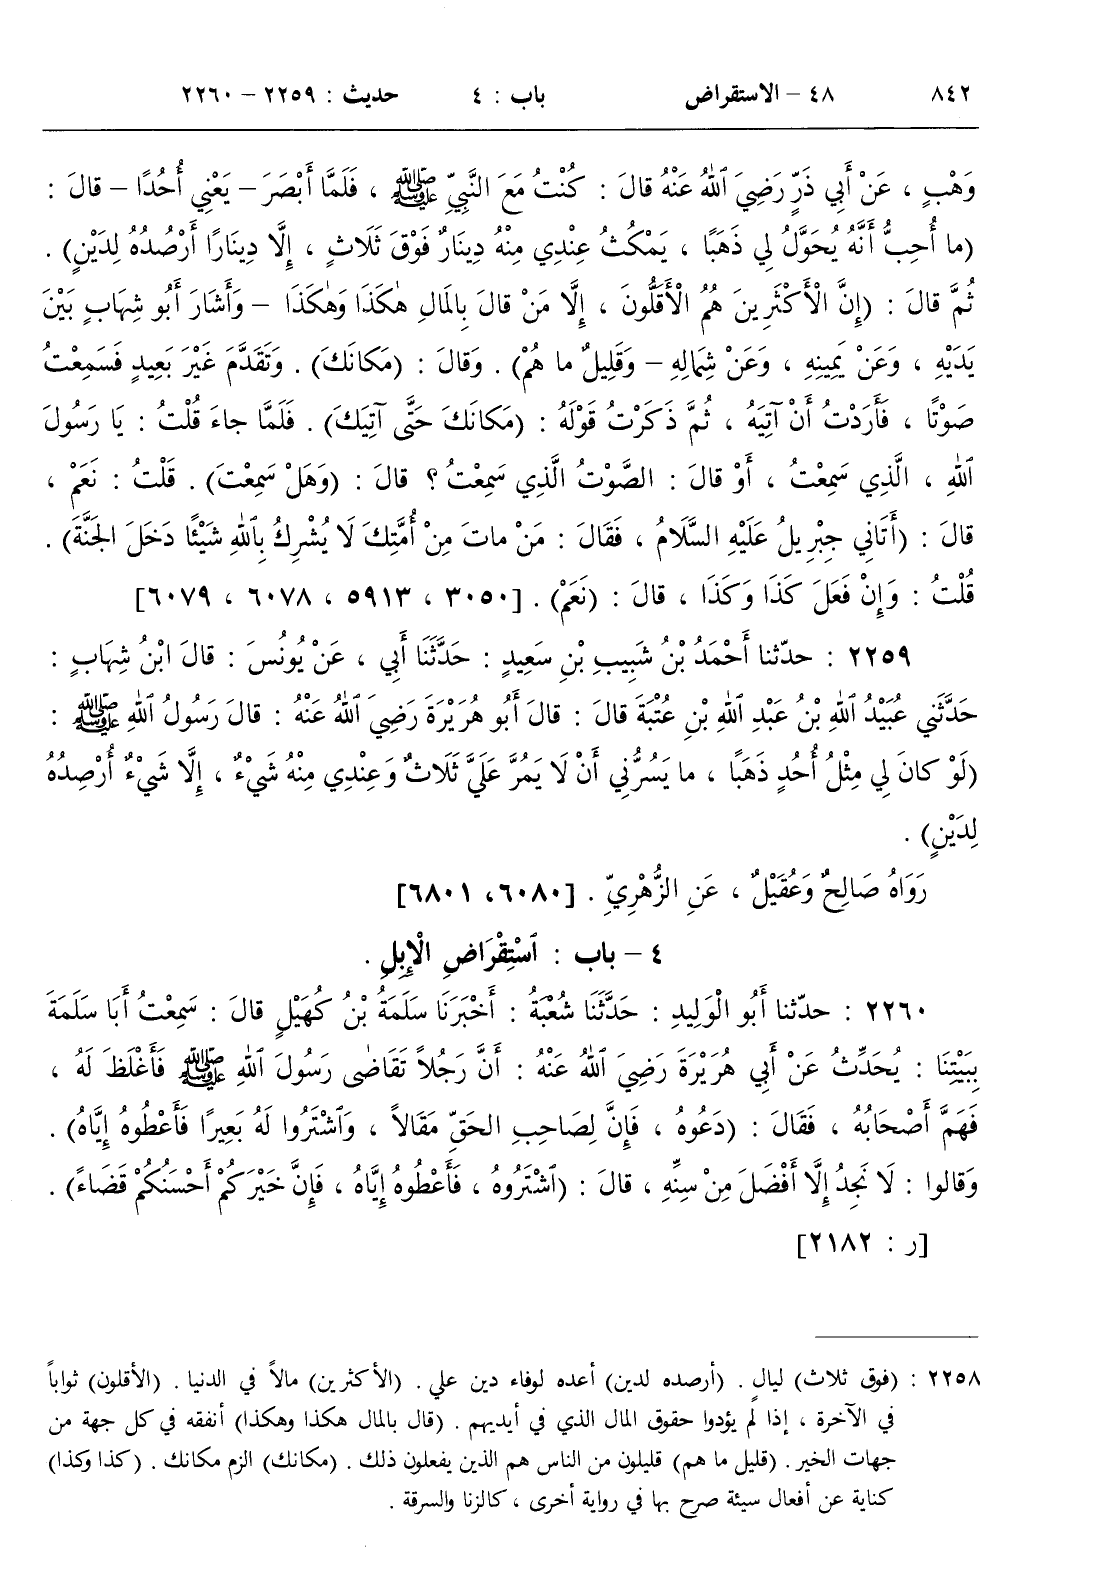 ٨٤٢ ٤٨ – الاستقراض باب : ٤ حديث : ٢٢٥٩ – ٢٢٦٠
وَهْبٍ ، عَنْ أَبِي ذَرٍّ رَضِيَ ٱللهُ عَنْهُ قالَ : كُنْتُ مَعَ النَّبِيِّ ﷺ ، فَلَمَّا أَبْصَرَ – يَعْنِي أُحُدًا – قالَ :
(ما أُحِبُّ أَنَّهُ يُحَوَّلُ لِي ذَهَبًا ، يَمْكُثُ عِنْدِي مِنْهُ دِينَارٌ فَوْقَ ثَلَاثٍ ، إِلَّا دِينَارًا أَرْصُدُهُ لِدَيْنٍ) .
ثُمَّ قالَ : (إِنَّ الْأَكْثَرِينَ هُمُ الْأَقَلُّونَ ، إِلَّا مَنْ قالَ بِالمَالِ هٰكَذَا وَهٰكَذَا – وَأَشَارَ أَبُو شِهَابٍ بَيْنَ
يَدَيْهِ ، وَعَنْ يَمِينِهِ ، وَعَنْ شِمَالِهِ – وَقَلِيلٌ ما هُمْ) . وَقالَ : (مَكانَكَ) . وَتَقَدَّمَ غَيْرَ بَعِيدٍ فَسَمِعْتُ
صَوْتًا ، فَأَرَدْتُ أَنْ آتِيَهُ ، ثُمَّ ذَكَرْتُ قَوْلَهُ : (مَكانَكَ حَتَّى آتِيَكَ) . فَلَمَّا جاءَ قُلْتُ : يَا رَسُولَ
ٱللهِ ، الَّذِي سَمِعْتُ ، أَوْ قالَ : الصَّوْتُ الَّذِي سَمِعْتُ ؟ قالَ : (وَهَلْ سَمِعْتَ) . قُلْتُ : نَعَمْ ،
قالَ : (أَتَانِي جِبْرِيلُ عَلَيْهِ السَّلَامُ ، فَقَالَ : مَنْ ماتَ مِنْ أُمَّتِكَ لَا يُشْرِكُ بِٱللهِ شَيْئًا دَخَلَ الجَنَّةَ) .
قُلْتُ : وَإِنْ فَعَلَ كَذَا وَكَذَا ، قالَ : (نَعَمْ) . [٣٠٥٠ ، ٥٩١٣ ، ٦٠٧٨ ، ٦٠٧٩]
٢٢٥٩ : حدّثنا أَحْمَدُ بْنُ شَبِيبِ بْنِ سَعِيدٍ : حَدَّثَنَا أَبِي ، عَنْ يُونُسَ : قالَ ابْنُ شِهَابٍ :
حَدَّثَنِي عُبَيْدُ ٱللهِ بْنُ عَبْدِ ٱللهِ بْنِ عُتْبَةَ قالَ : قالَ أَبُو هُرَيْرَةَ رَضِيَ ٱللهُ عَنْهُ : قالَ رَسُولُ ٱللهِ ﷺ :
(لَوْ كانَ لِي مِثْلُ أُحُدٍ ذَهَبًا ، ما يَسُرُّنِي أَنْ لَا يَمُرَّ عَلَيَّ ثَلَاثٌ وَعِنْدِي مِنْهُ شَيْءٌ ، إِلَّا شَيْءٌ أُرْصِدُهُ
لِدَيْنٍ) .
رَوَاهُ صَالِحٌ وَعُقَيْلٌ ، عَنِ الزُّهْرِيِّ . [٦٠٨٠، ٦٨٠١]
٤ – باب : ٱسْتِقْرَاضِ الْإِبِلِ .
٢٢٦٠ : حدّثنا أَبُو الْوَلِيدِ : حَدَّثَنَا شُعْبَةُ : أَخْبَرَنَا سَلَمَةُ بْنُ كُهَيْلٍ قالَ : سَمِعْتُ أَبَا سَلَمَةَ
بِبَيْتِنَا : يُحَدِّثُ عَنْ أَبِي هُرَيْرَةَ رَضِيَ ٱللهُ عَنْهُ : أَنَّ رَجُلاً تَقَاضٰى رَسُولَ ٱللهِ ﷺ فَأَغْلَظَ لَهُ ،
فَهَمَّ أَصْحَابُهُ ، فَقَالَ : (دَعُوهُ ، فَإِنَّ لِصَاحِبِ الحَقِّ مَقَالاً ، وَٱشْتَرُوا لَهُ بَعِيرًا فَأَعْطُوهُ إِيَّاهُ) .
وَقالوا : لَا نَجِدُ إِلَّا أَفْضَلَ مِنْ سِنِّهِ ، قالَ : (ٱشْتَرُوهُ ، فَأَعْطُوهُ إِيَّاهُ ، فَإِنَّ خَيْرَكُمْ أَحْسَنُكُمْ قَضَاءً) .
[ر : ٢١٨٢]
٢٢٥٨ : (فوق ثلاث) ليالٍ . (أرصده لدين) أعده لوفاء دين علي . (الأكثرين) مالاً في الدنيا . (الأقلون) ثواباً
في الآخرة ، إذا لم يؤدوا حقوق المال الذي في أيديهم . (قال بالمال هكذا وهكذا) أنفقه في كل جهة من
جهات الخير . (قليل ما هم) قليلون من الناس هم الذين يفعلون ذلك . (مكانك) الزم مكانك . (كذا وكذا)
كناية عن أفعال سيئة صرح بها في رواية أخرى ، كالزنا والسرقة .